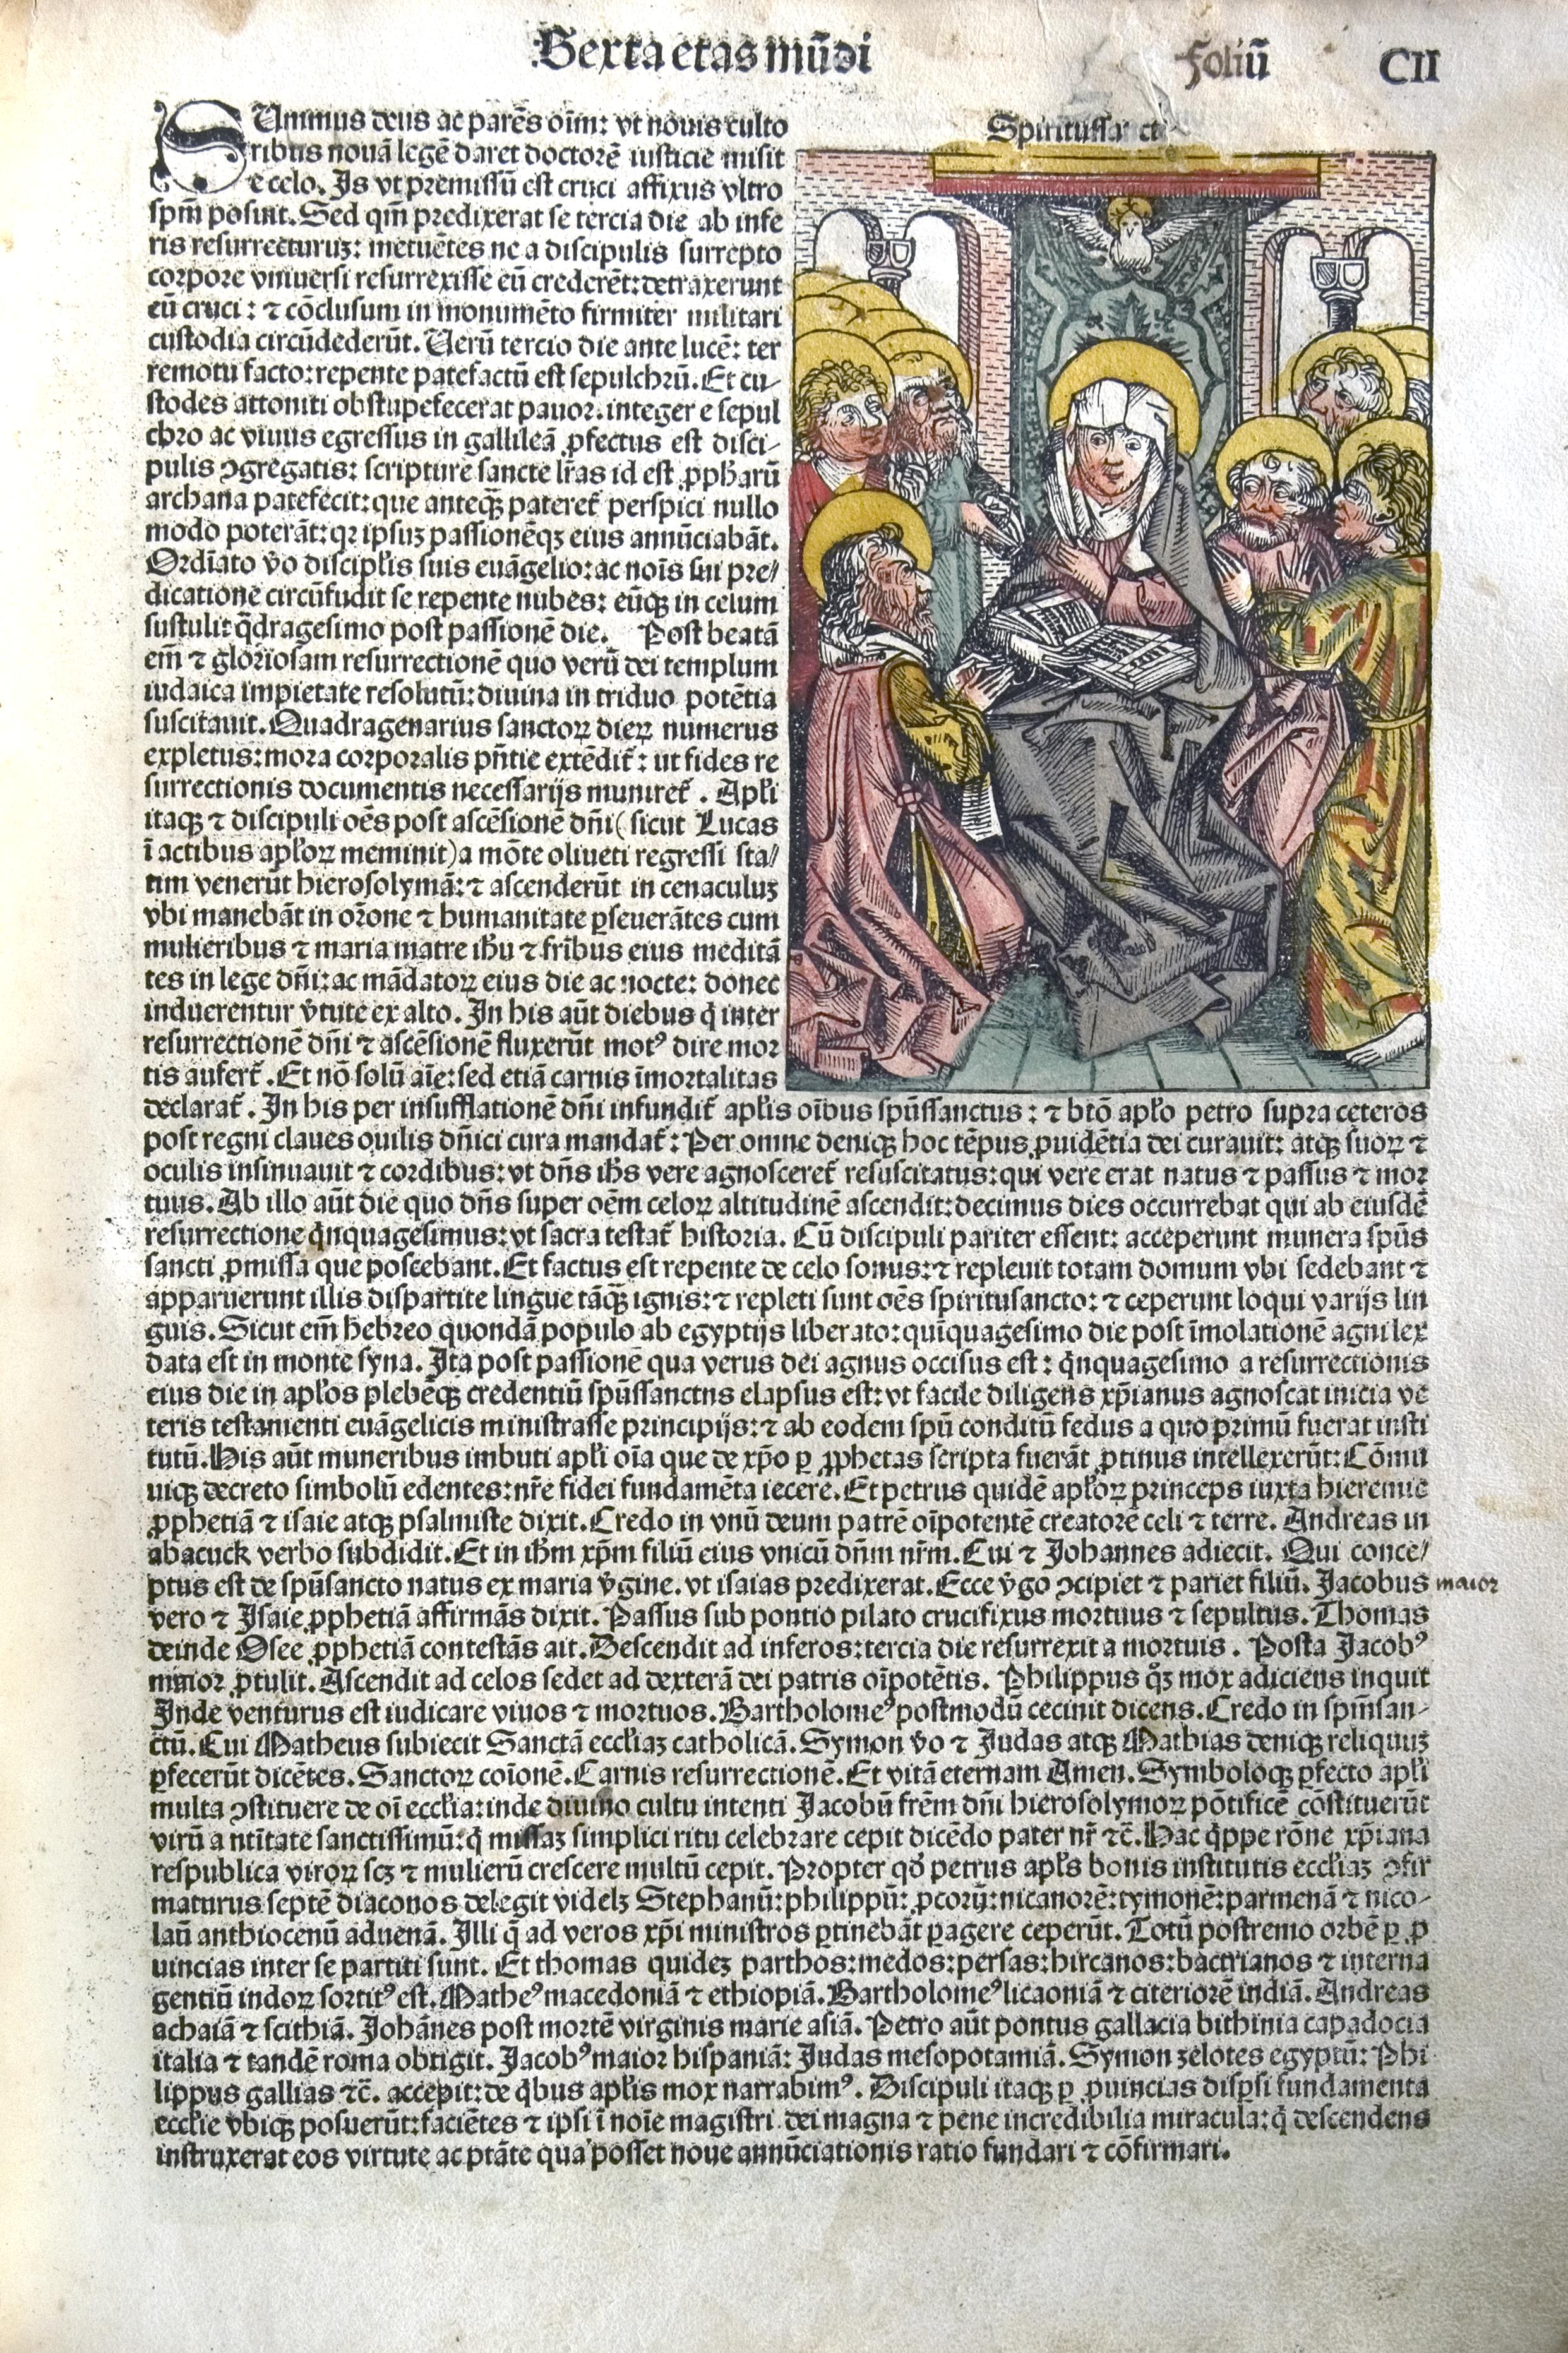 Sexta etas mūdi
Foliū CII
Spiritussā ct
SUmmus deus ac parēs oīm: vt nouis culto
ribus nouā legē daret doctorē iusticie misit
e celo. Is vt premissū est cruci affixus vltro
spm̄ posuit. Sed qm̄ predixerat se tercia die ab infe
ris resurrecturuꝫ: metuētes ne a discipulis surrepto
corpore vniuersi resurrexisse eū crederēt: detraxerunt
eū cruci: ⁊ cōclusum in monumēto firmiter militari
custodia circūdederūt. Uerū tercio die ante lucē: ter
remotu facto: repente patefactū est sepulchrū. Et cu-
stodes attoniti obstupefecerat pauor. integer e sepul
chro ac viuus egressus in gallileā ꝓfectus est disci-
pulis ↄgregatis: scripture sancte lr̄as id est ꝓpharū
archana patefecit: que anteqꝫ̄ pateret᷑ perspici nullo
modo poterāt: qꝛ ipsuꝫ passionēqꝫ eius annūciabāt.
Ordiato v̄o discipl̄is suis euāgelio: ac noīs sui pre/
dicatione circūfudit se repente nubes: eūqꝫ in celum
sustulit q̄dragesimo post passionē die. Post beatā
em̄ ⁊ gloriosam resurrectionē quo verū dei templum
iudaica impietate resolutū: diuina in triduo potētia
suscitauit. Quadragenarius sanctoꝝ dieꝝ numerus
expletus: mora corporalis pn̄tie extēdit᷑: ut fides re
surrectionis documentis necessarijs muniret᷑. Apl̄i
itaqꝫ ⁊ discipuli oēs post ascēsionē dn̄i (sicut Lucas
ī actibus apl̄oꝝ meminit) a mōte oliueti regressi sta/
tim venerūt hierosolymā: ⁊ ascenderūt in cenaculuꝫ
vbi manebāt in or̄one ⁊ humanitate ꝑseuerātes cum
mulieribus ⁊ maria matre ih̄u ⁊ fr̄ibus eius meditā
tes in lege dn̄i: ac mādatoꝝ eius die ac nocte: donec
induerentur v̄tute ex alto. In his aūt diebus q̄ inter
resurrectionē dn̄i ⁊ ascēsionē fluxerūt motꝰ dire mor
tis aufert᷑. Et nō solū aīe: sed etiā carnis īmortalitas
declarat᷑. In his per insufflationē dn̄i infundit᷑ apl̄is oībus spūssanctus: ⁊ btō apl̄o petro supra ceteros
post regni claues ouilis dn̄ici cura mandat᷑: Per omne deniqꝫ hoc tēpus ꝓuidētia dei curauit: atqꝫ suoꝝ ⁊
oculis insinuauit ⁊ cordibus: vt dn̄s ih̄s vere agnosceret᷑ resuscitatus: qui vere erat natus ⁊ passus ⁊ mor
tuus. Ab illo aūt die quo dn̄s super oēm celoꝝ altitudinē ascendit: decimus dies occurrebat qui ab eiusdē
resurrectione q̄nquagesimus: vt sacra testat᷑ historia. Cū discipuli pariter essent: acceperunt munera spūs
sancti ꝓmissa que poscebant. Et factus est repente de celo sonus: ⁊ repleuit totam domum vbi sedebant ⁊
apparuerunt illis dispartite lingue tāqꝫ̄ ignis: ⁊ repleti sunt oēs spiritusancto: ⁊ ceperunt loqui varijs lin
guis. Sicut em̄ hebreo quondā populo ab egyptijs liberato: quīquagesimo die post īmolationē agni lex
data est in monte syna. Ita post passionē qua verus dei agnus occisus est: q̄nquagesimo a resurrectionis
eius die in apl̄os plebēqꝫ credentiū spūssanctus elapsus est: vt facile diligens xp̄ianus agnoscat inicia ve
teris testamenti euāgelicis ministrasse principijs: ⁊ ab eodem spū conditū fedus a quo primū fuerat insti
tutū. His aūt muneribus imbuti apl̄i oīa que de xp̄o ꝑ ꝓphetas scripta fuerāt ꝓtinus intellexerūt: Cōmu
niqꝫ decreto simbolū edentes: nr̄e fidei fundamēta iecere. Et petrus quidē apl̄oꝝ princeps iuxta hieremie
ꝓphetiā ⁊ isaie atqꝫ psalmiste dixit. Credo in vnū deum patrē oīpotentē creatorē celi ⁊ terre. Andreas in
abacuck verbo subdidit. Et in ih̄m xp̄m filiū eius vnicū dn̄m nr̄m. Cui ⁊ Johannes adiecit. Qui conce/
ptus est de spūsancto natus ex maria v̄gine. vt isaias predixerat. Ecce v̄go ↄcipiet ⁊ pariet filiū. Jacobus maior
vero ⁊ Isaie ꝓphetiā affirmās dixit. Passus sub pontio pilato crucifixus mortuus ⁊ sepultus. Thomas
deinde Osee ꝓphetiā contestās ait. Descendit ad inferos: tercia die resurrexit a mortuis. Postea Jacobꝰ
minor ꝓtulit. Ascendit ad celos sedet ad dexterā dei patris oīpotētis. Philippus qꝫ mox adiciens inquit
Inde venturus est iudicare viuos ⁊ mortuos. Bartholomeꝰ postmodū cecinit dicens. Credo in spm̄san-
ctū. Cui Matheus subiecit Sanctā eccl̄iaꝫ catholicā. Symon v̄o ⁊ Judas atqꝫ Mathias deniqꝫ reliquuꝫ
ꝑfecerūt dicētes. Sanctoꝝ coīonē. Carnis resurrectionē. Et vitā eternam Amen. Symboloqꝫ ꝑfecto apl̄i
multa ↄstituere de oī eccl̄ia: inde diuino cultu intenti Jacobū frēm dn̄i hierosolymoꝝ pōtificē cōstituerūt
virū a ntīitate sanctissimū: q̄ missaꝫ simplici ritu celebrare cepit dicēdo pater nr̄ ⁊c̄. Hac q̄ppe rōne xp̄iana
respublica viroꝝ scꝫ ⁊ mulierū crescere multū cepit. Propter qd̄ petrus apl̄s bonis institutis eccl̄iaꝫ ↄfir
maturus septē diaconos delegit videlꝫ Stephanū: philippū: ꝓcorū: nicanorē: tymonē: parmenā ⁊ nico-
laū anthiocenū aduenā. Illi q̄ ad veros xp̄i ministros ꝑtinebāt ꝑagere ceperūt. Totū postremo orbē ꝑ ꝓ
uincias inter se partiti sunt. Et thomas quideꝫ parthos: medos: persas: hircanos: bactrianos ⁊ interna
gentiū indoꝝ sortitꝰ est. Matheꝰ macedoniā ⁊ ethiopiā. Bartholomeꝰ licaoniā ⁊ citeriorē indiā. Andreas
achaiā ⁊ scithiā. Johānes post mortē virginis marie asiā. Petro aūt pontus gallacia bithinia capadocia
italia ⁊ tandē roma obtigit. Jacobꝰ maior hispaniā: Judas mesopotamiā. Symon zelotes egyptū: Phi
lippus gallias ⁊c̄. accepit: de q̄bus apl̄is mox narrabimꝰ. Discipuli itaqꝫ ꝑ ꝓuincias disꝑsi fundamenta
eccl̄ie vbiqꝫ posuerūt: faciētes ⁊ ipsi ī noīe magistri dei magna ⁊ pene incredibilia miracula: q̄ descendens
instruxerat eos virtute ac ptāte qua posset noue annūciationis ratio fundari ⁊ cōfirmari.